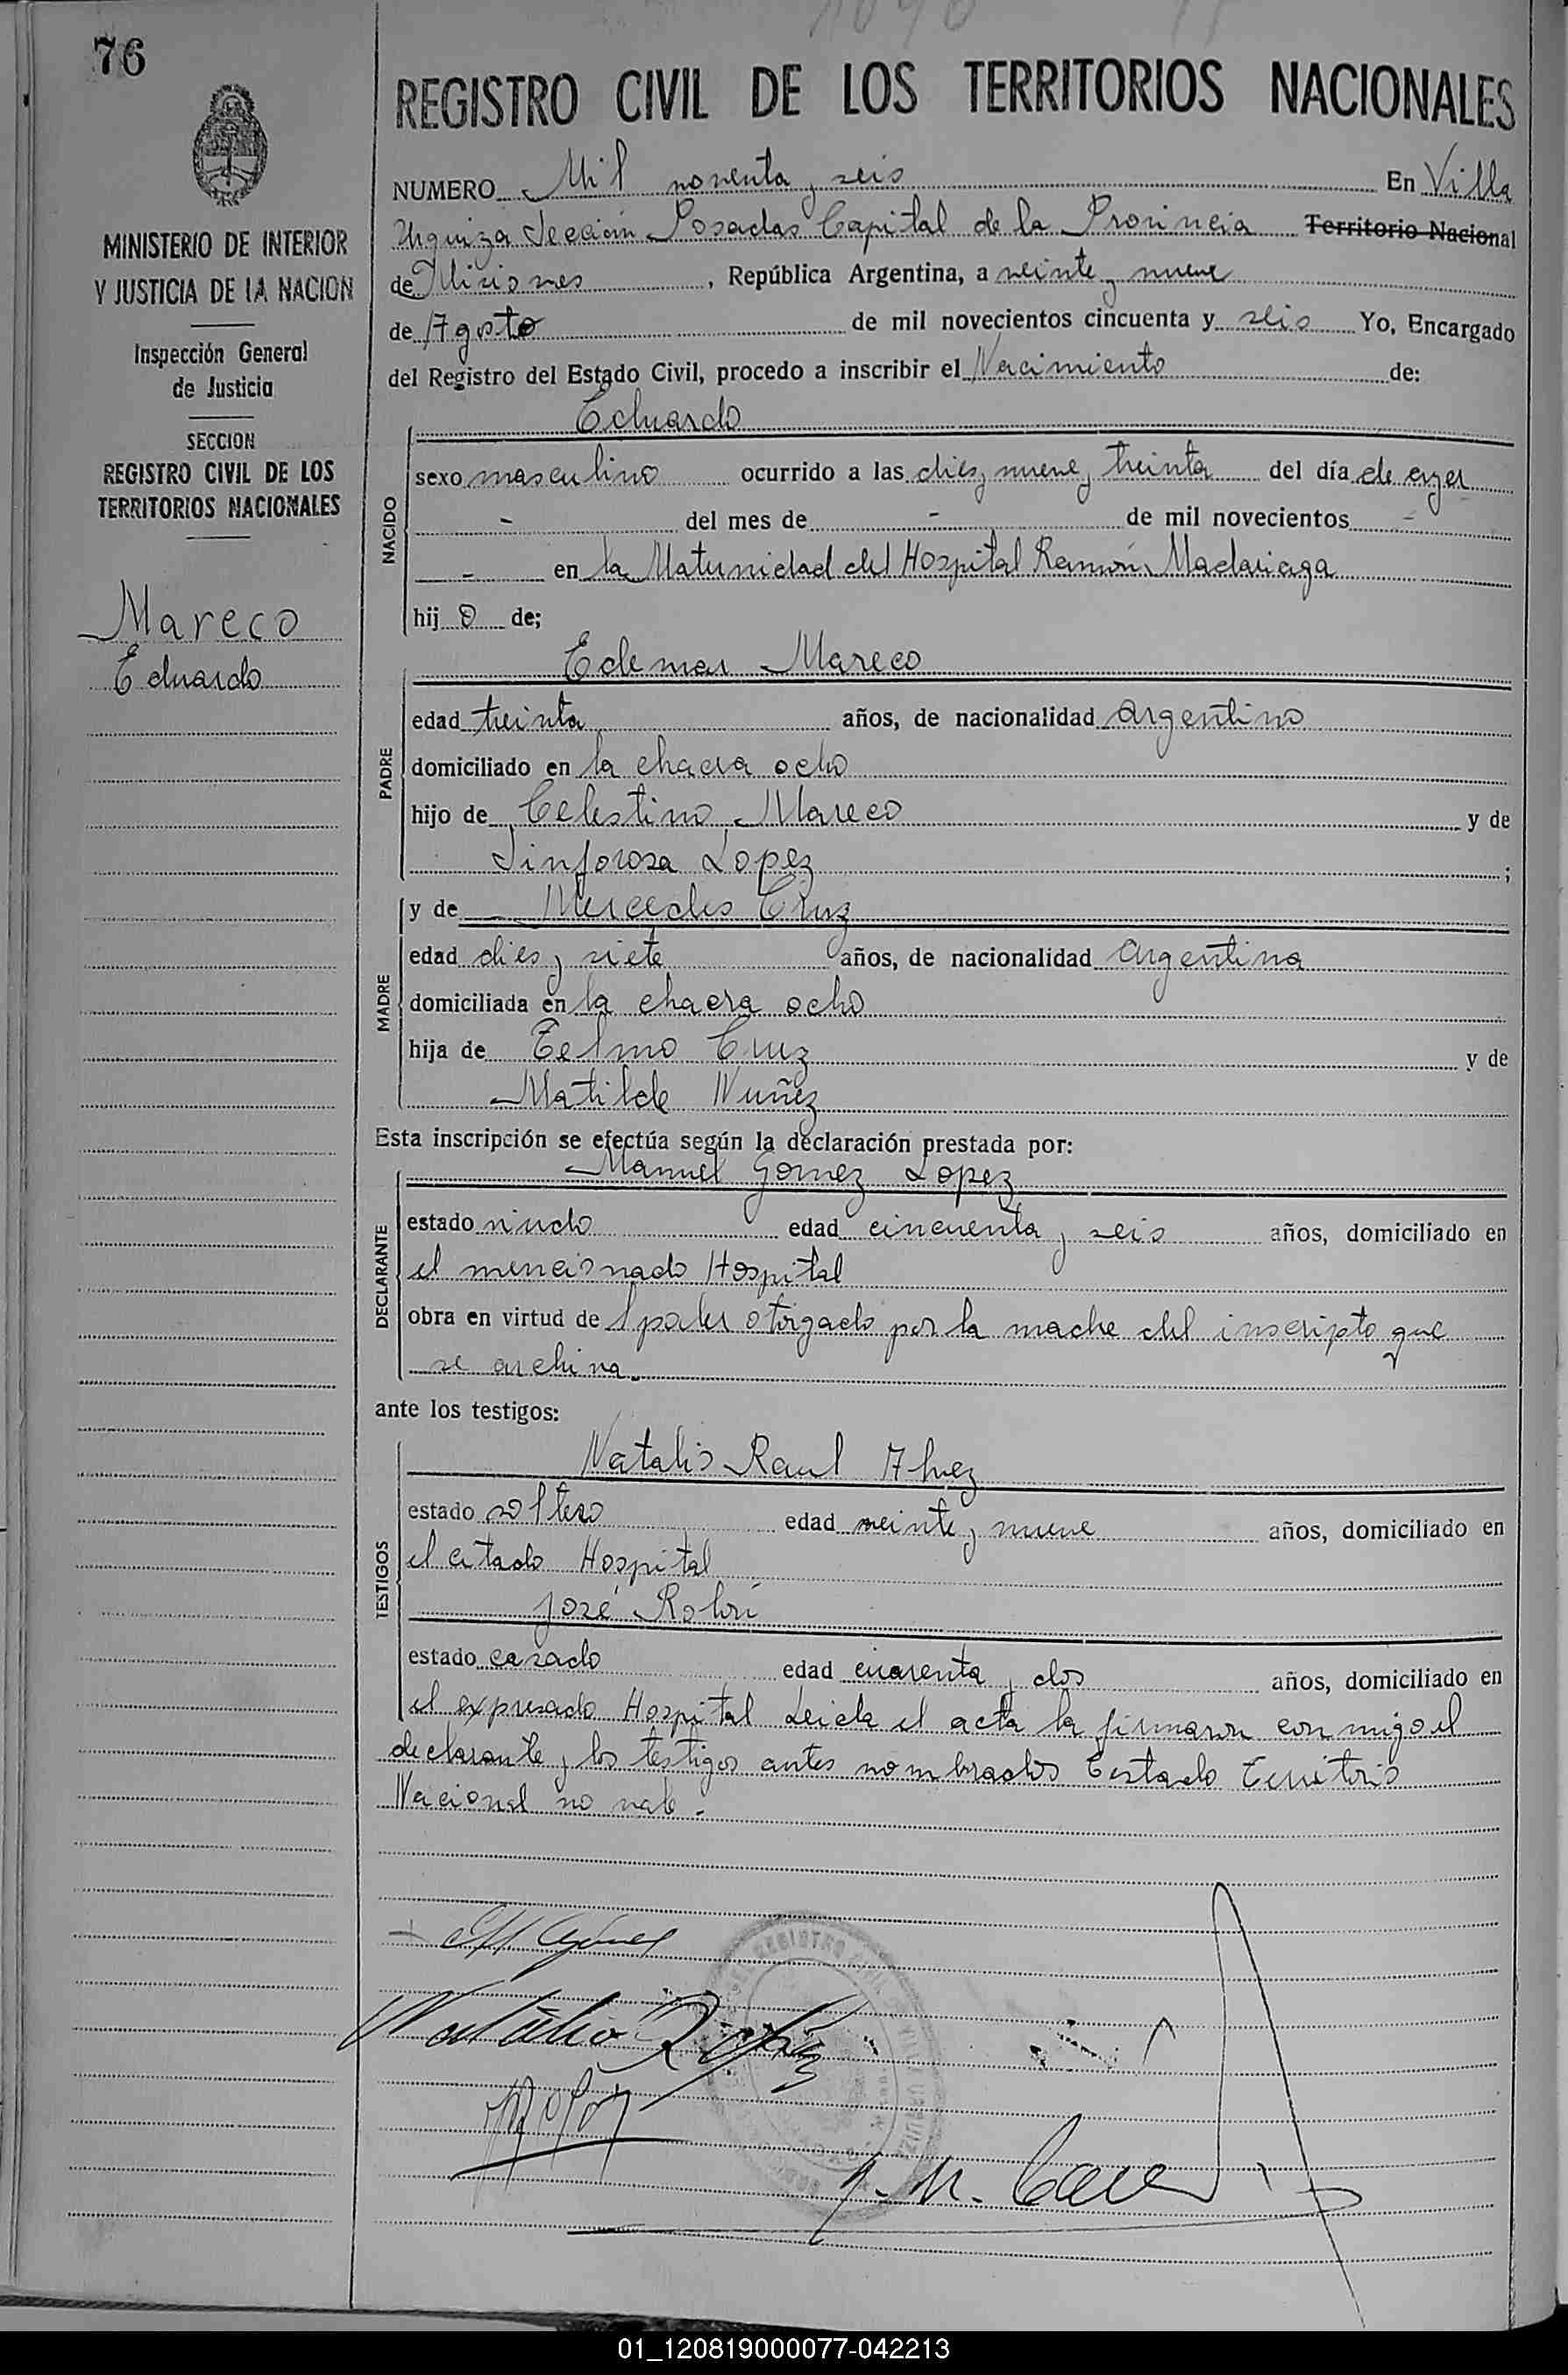 76
MINISTERIO DE INTERIOR
Y JUSTICIA DE LA NACION
Inspección General
de Justicia
SECCION
REGISTRO CIVIL DE LOS
TERRITORIOS NACIONALES
Mareco
Eduardo
REGISTRO CIVIL DE LOS TERRITORIOS NACIONALES
NUMERO Mil noventa y seis En Villa
Urquiza Sección Posadas Capital de la Provincia Territorio Nacional
de Misiones, República Argentina, a veinte y nueve
de Agosto de mil novecientos cincuenta y seis Yo, Encargado
del Registro del Estado Civil, procedo a inscribir el Nacimiento de:
NACIDO
Eduardo
sexo masculino ocurrido a las dies y nueve y treinta del día de ayer
- del mes de - de mil novecientos -
- en la Maternidad del Hospital Ramón Madariaga
hij o de;
PADRE
Edemar Mareco
edad treinta años, de nacionalidad argentino
domiciliado en la chacra ocho
hijo de Celestino Mareco y de
Sinforosa Lopez ;
MADRE
y de Mercedes Cruz
edad dies y siete años, de nacionalidad argentina
domiciliada en la chacra ocho
hija de Telmo Cruz y de
Matilde Nuñez
Esta inscripción se efectúa según la declaración prestada por:
DECLARANTE
Manuel Gomez Lopez
estado viudo edad cincuenta y seis años, domiciliado en
el mencionado Hospital
obra en virtud de poder otorgado por la madre del inscripto que
se archiva
ante los testigos:
TESTIGOS
Natalio Raul
estado soltero edad veinte y nueve años, domiciliado en
el citado Hospital
José
estado casado edad cuarenta y dos años, domiciliado en
el expresado Hospital Leida el acta la firmaron con migo el
declarante y los testigos antes nombrados Testado Territorio
Nacional no vale -
01_120819000077-042213